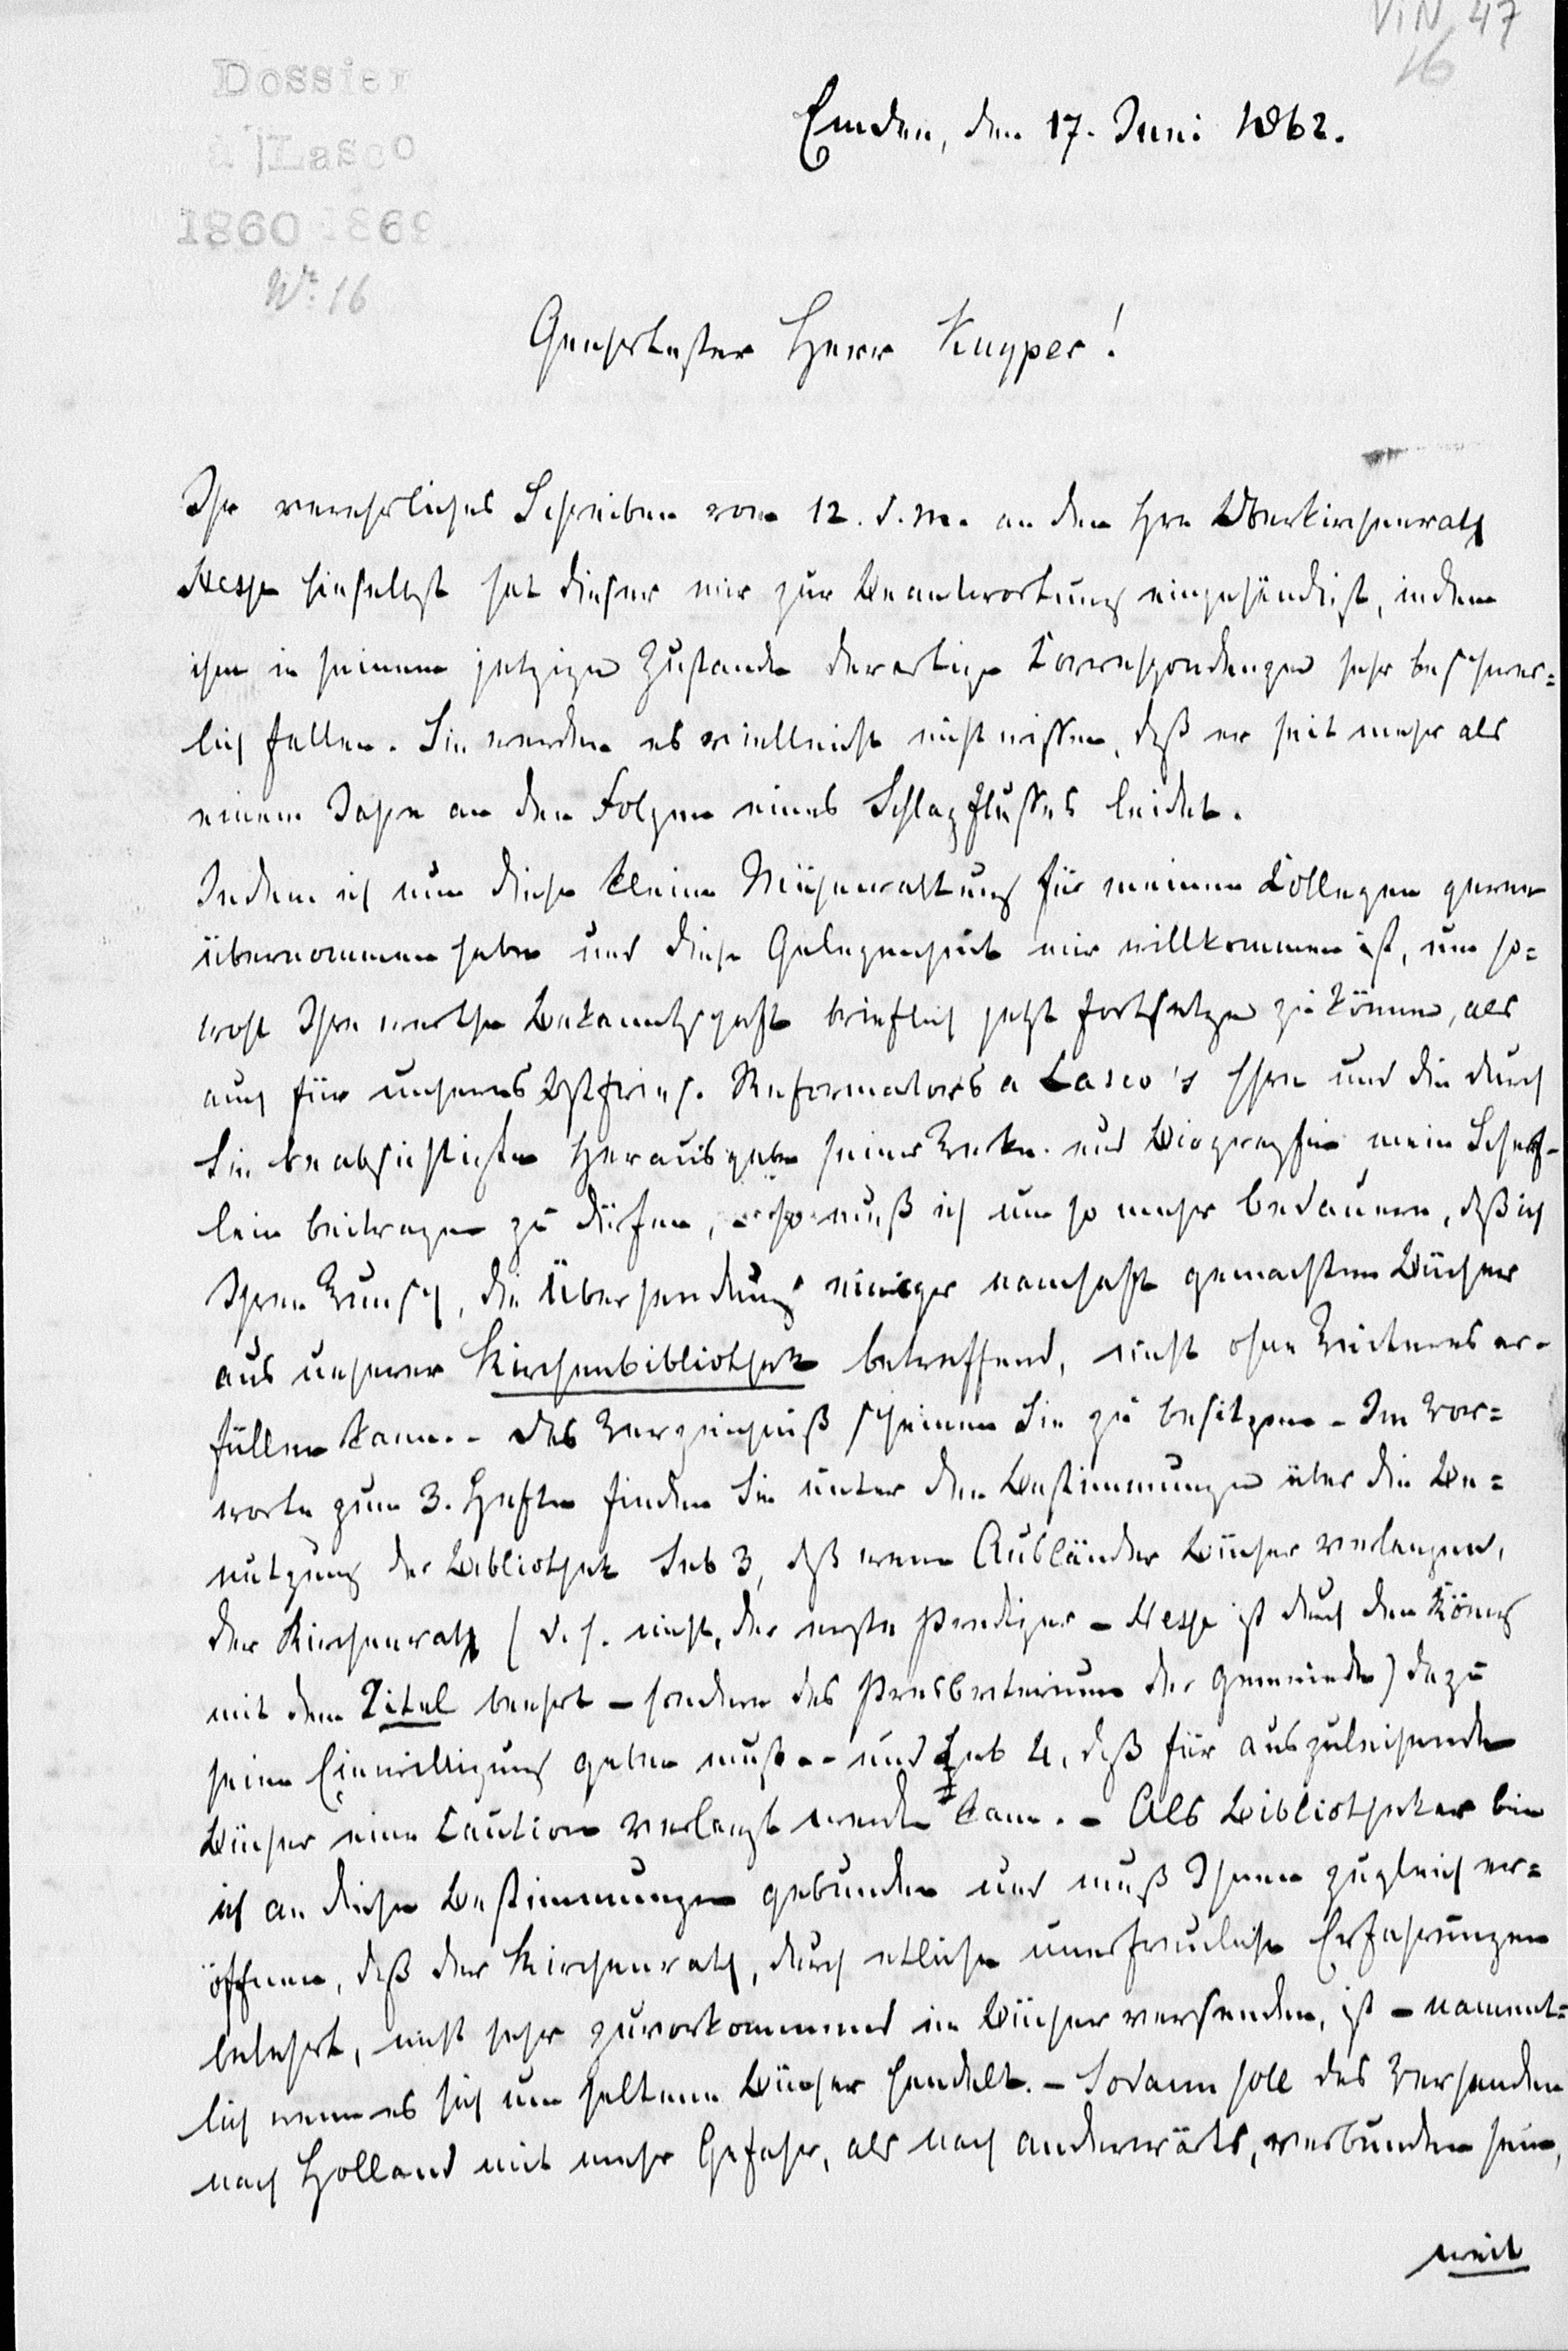 ViN 47
16
Dossier
a Lasco
1860 1869
No. 16
Emden, den 17. Juni 1862.
Geehrtester Herr Kuyper!
Ihr verehrliches Schreiben vom 12. d. M. an den Hrn Oberkirchenrath
Hesse hieselbst hat dieser mir zur Beantwortung eingehändigt, indem
ihm in seinem jetzigen Zustande derartige Correspondenzen sehr beschwer=
lich fallen. Sie werden es vielleicht nicht wissen, daß er seit mehr als
einem Jahre an den Folgen eines Schlagflusses leidet.
Indem ich nun diese kleine Mühewaltung für meinen Collegen gerne
übernommen habe und diese Gelegenheit mir willkommen ist, um so=
wohl Ihre werthe Bekanntschaft brieflich jetzt fortsetzen zu können, als
auch für unseres Ostfries. Reformators a Lasco's Ehre und die durch
Sie beabsichtigte Herausgabe seiner Werke und Biographie mein Scherf-
lein beitragen zu dürfen, so muß ich um so mehr bedauern, daß ich
Ihren Wunsch, die Übersendung einiger namhaft gemachten Bücher
aus unserer Kirchenbibliothek betreffend, nicht ohne Weiteres er-
füllen kann. - Das Verzeichniß scheinen Sie zu besitzen - Im Vor=
worte zum 3. Hefte finden Sie unter den Bestimmungen über die Be=
nutzung der Bibliothek sub 3, daß wenn Ausländer Bücher verlangen,
der Kirchenrath (d. h. nicht, der erste Prediger - Hesse ist durch den König
mit dem Titel beehrt - sondern das Presbyterium der Gemeinde) dazu
seine Einwilligung geben muß - und sub 4, daß für auszuleihende
Bücher eine Caution verlangt werden kann. - Als Bibliothekar bin
ich an diese Bestimmungen gebunden und muß Ihnen zugleich er=
öffnen, daß der Kirchenrath, durch etliche unerfreuliche Erfahrungen
belehrt, nicht sehr zuvorkommend im Bücher versenden, ist - nament=
lich wenn es sich um seltene Bücher handelt. - Sodann soll das Versenden
nach Holland mit mehr Gefahr, als nach anderwärts, verbunden sein,
weil